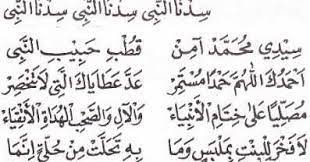 سِدْنَا النَّبِى سِدْنَا النَّبِى سِدْنَا النَّبِى
سَيِّدِي مُحَمَّدْ آمِنْ قُطْبِ حَبِيْبِ النَّبِى
اَحْمَدُكَ اللّٰهُمَّ حَمْدًا مُسْتَمِرْ عَدَّ عَطَايَاكَ الَّتِى لَا تَنْحَصِرْ
مُصَلِّيًا عَلَى خِتَامِ الْأَنْبِيَاءْ وَالْآلِ وَالصَّحْبِ الْهُدَاةِ الْأَتْقِيَاءْ
لَا فَخْرَ لِلْبِنْتِ بِمَلْبَسٍ وَمَا بِهِ تَحَلَّتْ مِنْ حُلِيٍّ اِنَّمَا